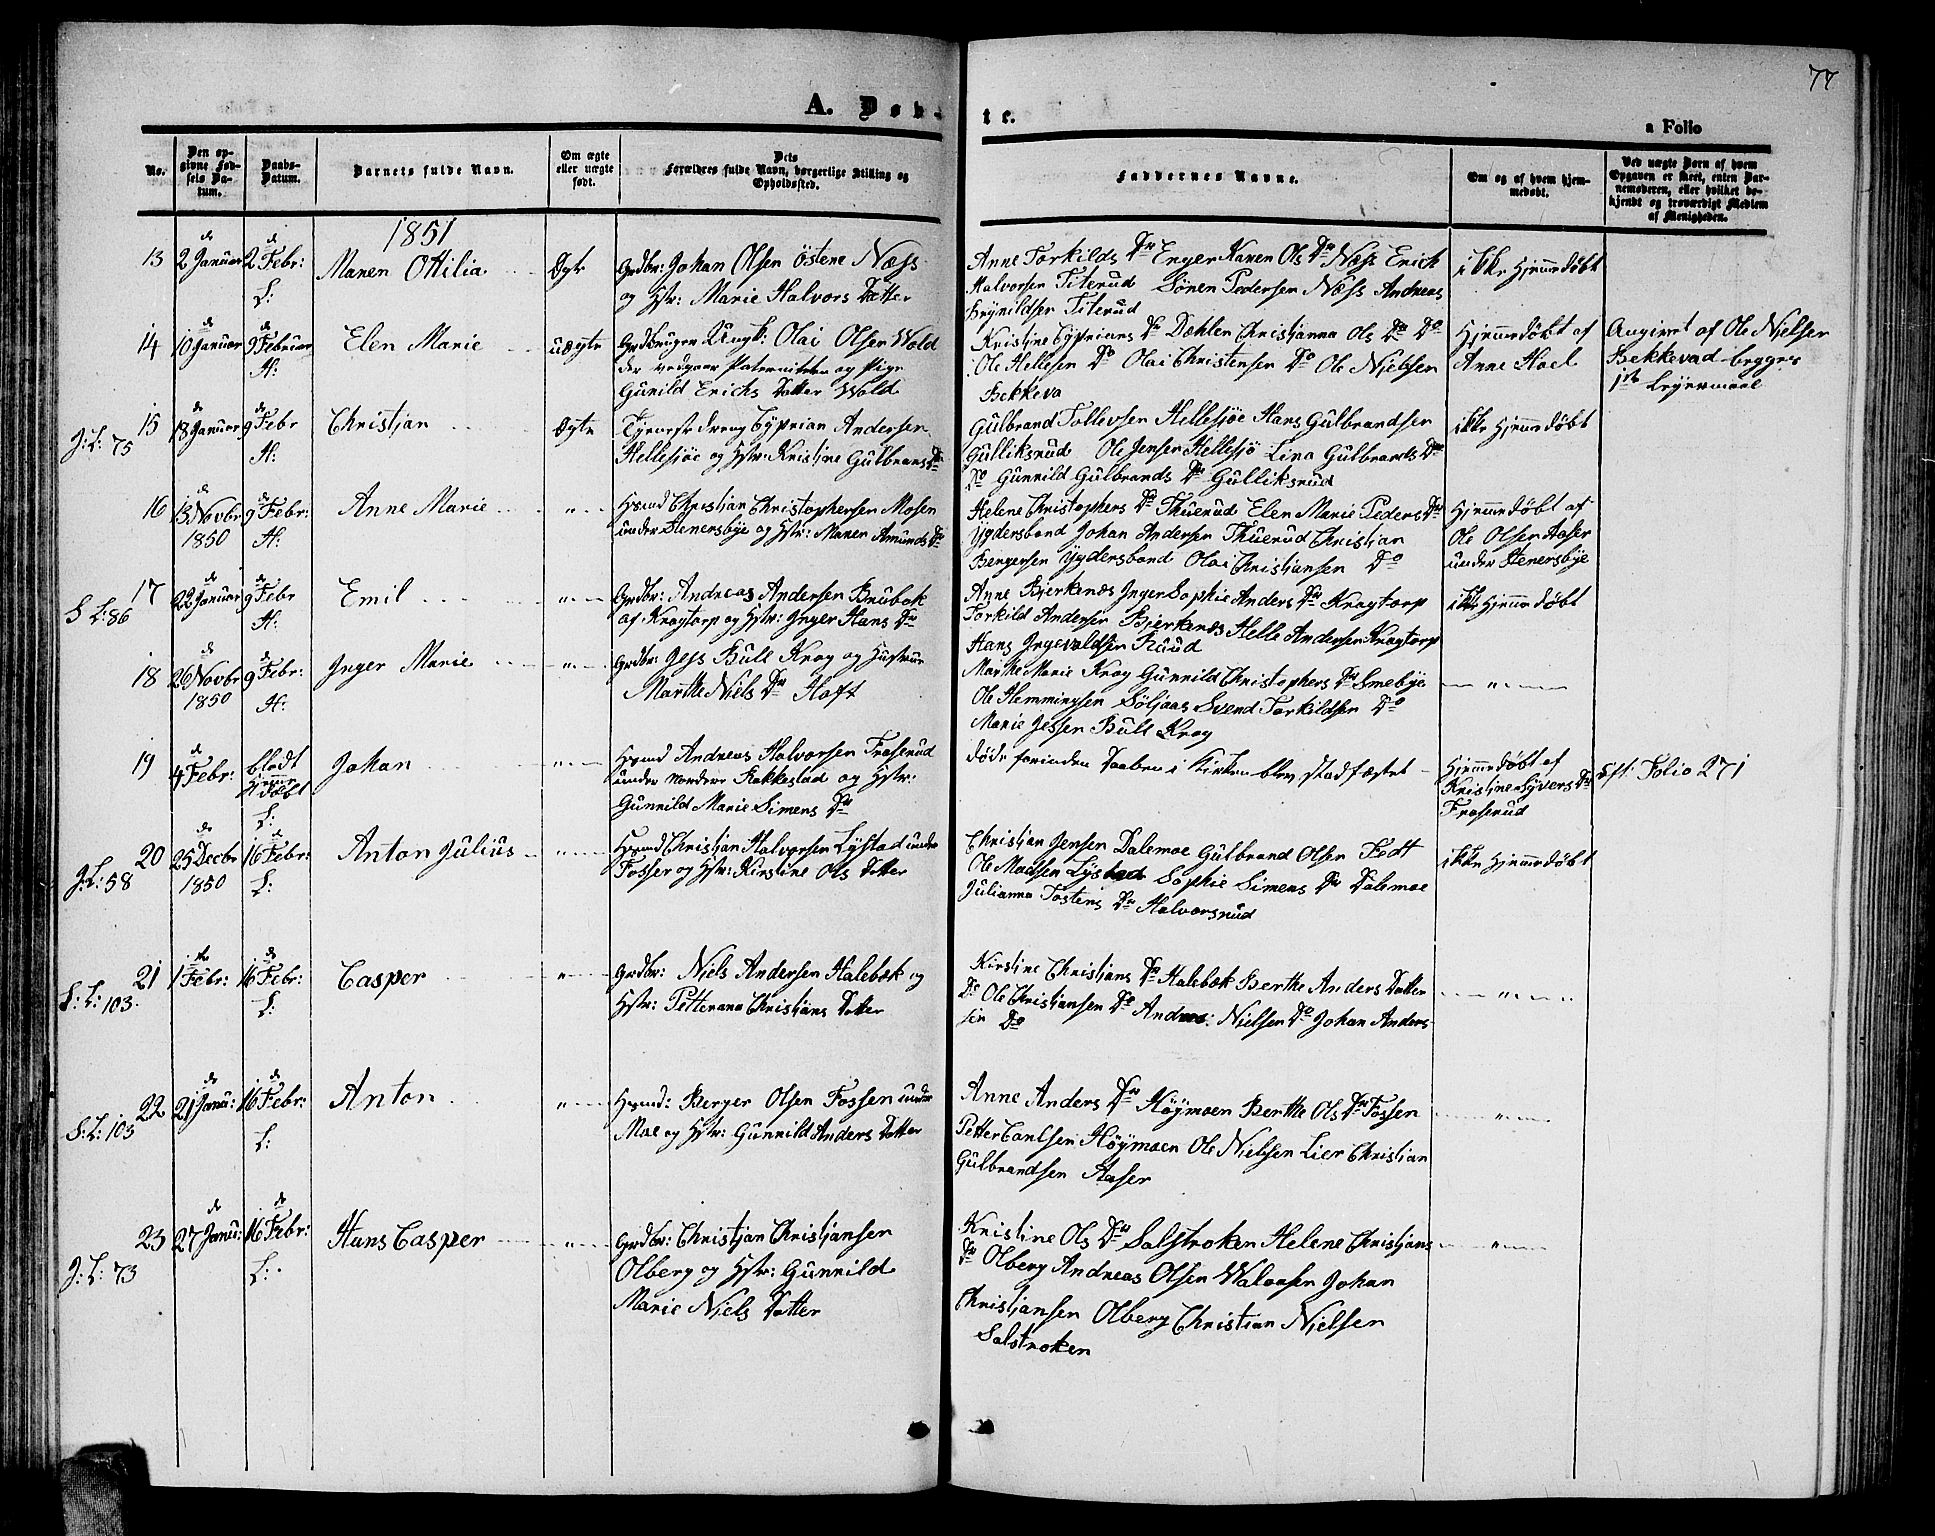 77
A. Døbte.
a Folio
No.
Den opgivne Fødsels Datum.
Daabs-Datum.
Barnets fulde Navn.
Om ægte eller uægte født.
Dets Forældres fulde Navn, borgerlige Stilling og Opholdssted.
Faddernes Navne.
Om og af hvem hjemmedøbt.
Ved uægte Børn af hvem Opgaven er skeet, enten Barnemoderen, eller hvilket bekjendt og troværdigt Medlem af Menigheden.
1851
13 d 2 Januar d 2 Febr: L: Maren Ottilia Ægte
Grdbr: Johan Olsen Östene Næss
og Hstr: Marie Halvors Datter
Anne Torkilds Dtr Enger Karen Ols Dtr Næss Erich
Halvorsen Titerud Sören Pedersen Næss Andreas
Brynildsen Titerud
ikke Hjemmedøbt
14 d 10 Januar d 9 Februar H: Elen Marie uægte
Grdbruger Ungk: Olai Olsen Wold
der vedgaar Paterniteten og Pige
Gunild Erichs Datter Wold
Kristine Cyprians Dr Dæhlen Christianna Ols Dr Do
Ole Hellesen Do Olai Christensen Do Ole Nielsen
Bekkeva
Hjemmedøbt af
Anne Hoel
Angivet af Ole Nielsen
Bekkevad begges
1ste Leyermaal
15 d 18 Januar d 9 Febr H: Christjan Ægte
J: L: 75
Tjenestedreng Cyprian Andersen
Hellesjøe og Hstr: Kristine Gulbrands Dtr
Gulbrand Tollevsen Hellesjøe Hans Gulbrandsen
Gulliksrud Ole Jensen Hellesjø Lina Gulbrands Dtr
Do Gunnild Gulbrands Dtr Gulliksrud
ikke Hjemmedøbt
16 d 13 Novbr 1850 d 9 Febr: H: Anne Marie — " —
Hsmd Christjan Christophersen Mosen
under Henersbye og Hstr: Maren Amunds Dtr
Helene Christophers Dtr Thuerud Elen Marie Peders Dtr
Ygdersbond Johan Andersen Thuerud Christian
Bengersen Ygdersbond Olai Christiansen Do
Hjemmedøbt af
Ole Olsen Aaser
under Henersbye
17 d 22 Januar d 9 Febr H: Emil — " —
S L: 86
Grdbr: Andreas Andersen Brubak
af Kragtorp og Hstr: Inger Hans Dtr
Anne Bjerkenæs Inger Sophie Anders Dtr Kragtorp
Torkild Andersen Bjerkenæs Helle Andersen Kragtorp
Hans Ingevaldsen Ruud
ikke Hjemmedøbt
18 d 26 Novbr 1850 d 9 Febr: H: Inger Marie — " —
Grdbr: Jess Bull Krog og Hustrue
Marthe Niels Dtr Hoft
Marthe Marie Krog Gunnild Christophers Dtr Smebye
Ole Hemmingsen Söljaas Svend Torkildsen Do
Marie Jessen Bull Krog
— " —
19 d 4 Febr: blødt Hjemmedøbt L: Johan — " —
Hsmd Andreas Halvorsen Froserud
under nordere Rakkestad og Hstr:
Gunnild Marie Simens Dtr
døde forinden Daaben i Kirken blev stadfæstet
Hjemmedøbt af
Kristine Syvers Dtr
Froserud
Cft: Folio 271
20 d 25 Decbr 1850 d 16 Febr: L: Anton Julius — " —
J: L: 58
Hsmd Christjan Halvorsen Lystad under
Fosser og Hstr: Kirstine Ols Datter
Christjan Jensen Dalemoe Gulbrand Olsen Fedt
Ole Madsen Lystad Sophie Simens Dtr Dalemoe
Julianna Tostens Dtr Halvorsrud
ikke Hjemmedøbt
21 d 1 Febr: d 16 Febr: L: Casper — " —
S: L: 103.
Grdbr: Niels Andersen Halebæk og
Hstr: Petterana Christjans Datter
Kirstine Christjans Dr Halebæk Berthe Anders Datter
Do Ole Christjansen Do Andreas: Nielsen Do Johan Anders-
sen Do
— " —
22 d 21 Janu: d 16 Febr: L: Anton — " —
S: L: 103
Hsmd: Berger Olsen Fossen under
Moe og Hstr: Gunnild Anders Datter
Anne Anders Dtr Höymoen Berthe Ols Dtr Fossen
Petter Carlsen Höymoen Ole Nielsen Lier Christjan
Gulbrandsen Aaser
— " —
23 d 27 Janu: d 16 Febr: L: Hans Casper — " —
J: L: 73
Grdbr: Christjan Christjansen
Olberg og Hstr: Gunnild
Marie Niels Datter
Kristine Ols Dtr Salstroken Helene Christjans
Dtr Olberg Andreas Olsen Walaasen Johan
Christjansen Olberg Christian Nielsen
Salstroken
— " —